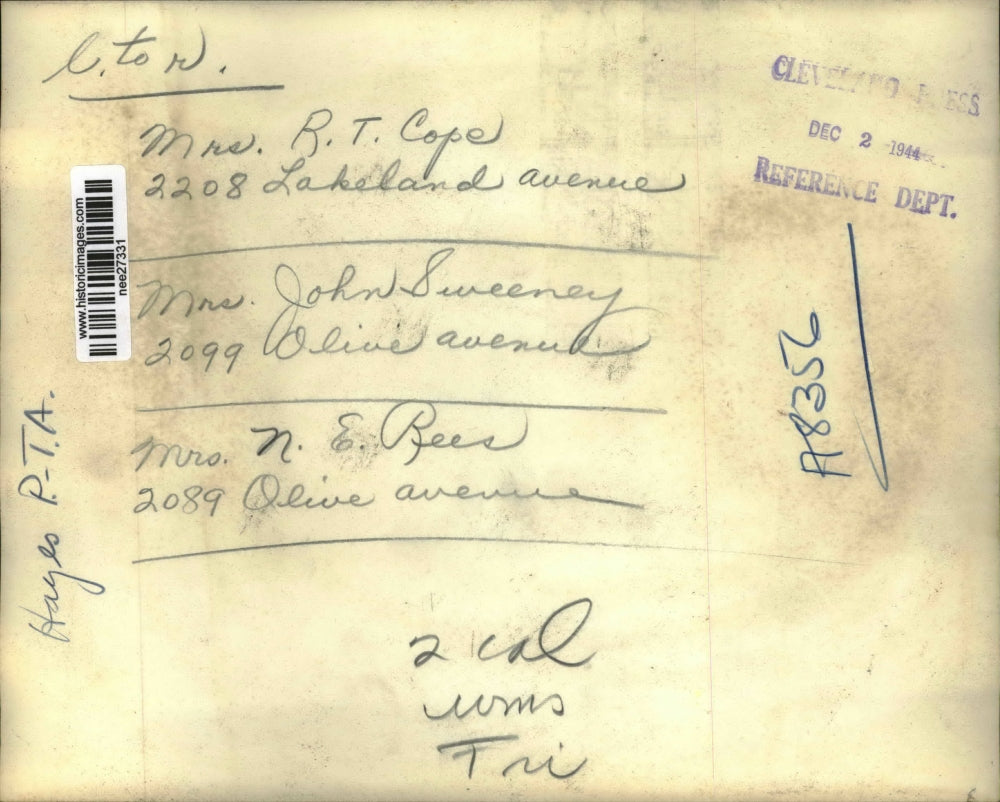 l. to r.
Mrs. R. T. Cope
2208 Lakeland avenue
Mrs. John Sweeney
2099 Olive avenue
Mrs. N. E. Rees
2089 Olive avenue
2 col
wms
Fri
Hayes P.-T.A.
www.historicimages.com
nee27331
CLEVELAND PRESS
DEC 2 1944
REFERENCE DEPT.
A8356